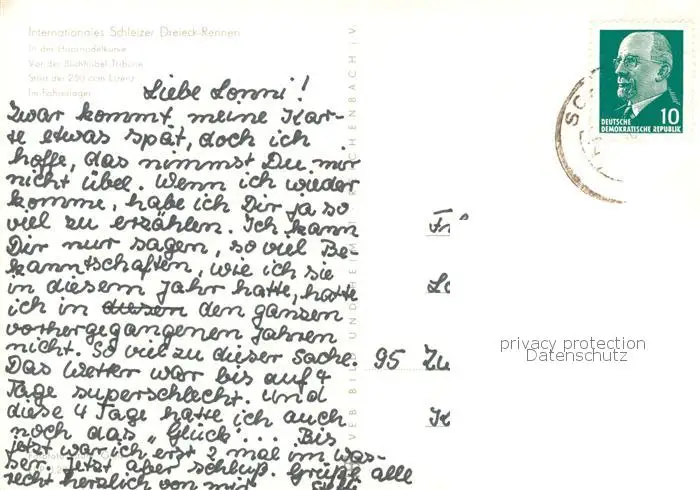 Internationales Schleizer Dreieck-Rennen
In der Haarnadelkurve
Vor der Buchhübel-Tribüne
Start der 250 ccm Lizenz
Im Fahrerlager
Liebe Lonni!
Zwar kommt meine Kar-
te etwas spät, doch ich
hoffe, das nimmst Du mir
nicht übel. Wenn ich wieder
komme, habe ich Dir ja so
viel zu erzählen. Ich kann
Dir nur sagen, so viel Be-
kanntschaften, wie ich sie
in diesem Jahr hatte, hatte
ich in diesen den ganzen
vorhergegangenen Jahren
nicht. So viel zu dieser Sache.
Das Wetter war bis auf 4
Tage superschlecht. Und
diese 4 Tage hatte ich auch
noch das "Glück"... Bis
jetzt war ich erst 2 mal im was-
ser. Jetzt aber schluß. Grüße alle
recht herzlich von mir
VEB BILD UND HEIM REICHENBACH IV
DEUTSCHE
DEMOKRATISCHE REPUBLIK
10
95 Zw
privacy protection
Datenschutz